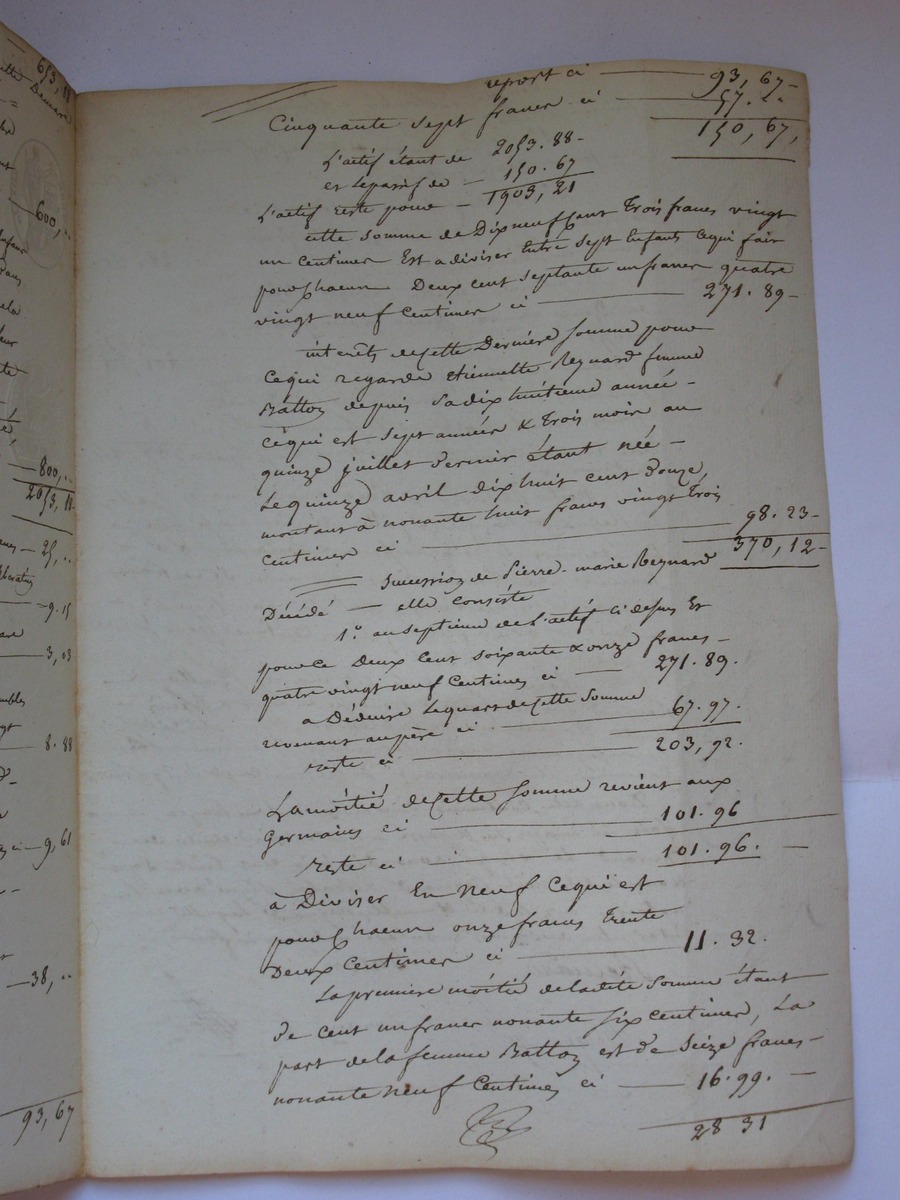 report ci — 93, 67 -
Cinquante sept francs ci — 57. -
150, 67,
L'actif étant de 2053. 88 -
et le passif de — 150. 67
L'actif reste pour — 1903, 21
cette somme de Dix neuf cent Trois francs vingt
un Centimes Est a diviser Entre sept Enfants Cequi fair
pour Chacun Deux cent septante un francs quatre
vingt neuf Centimes ci — 271. 89 -
intérêts de cette Dernière somme pour
Cequi regarde Etiennette Reynard femme
Balloz depuis sa dix huitieme année -
Cequi est sept années & Trois mois au
quinze juillet dernier étant née -
Le quinze avril dix huit cent douze,
montant à nonante huit francs vingt Trois
Centimes ci — 98. 23 -
370, 12 -
Succession de Pierre-marie Reynard
Décédé — elle consiste
1.° au septieme de L'actif Ci dessus Est
pour ce Deux Cent soixante & onze francs -
quatre vingt neuf Centimes ci — 271. 89.
a Déduire Le quart de Cette Somme
revenant au père ci — 67. 97.
reste ci — 203, 92.
La moitié de Cette somme revient aux
Germains ci — 101. 96
reste ci — 101. 96. —
à Diviser En neuf Cequi est
pour Chacun onze francs Trente
Deux Centimes ci — 11. 32.
La première moitié de ladite somme étant
de Cent un francs nonante six centimes, La
part de la femme Balloz est de Seize francs -
nonante neuf Centimes ci — 16. 99. —
28 31
653, 88
600, ..
800, ..
2053, 88
25, ..
9. 15
3, 03
8. 88
9, 61
38, ..
93, 67